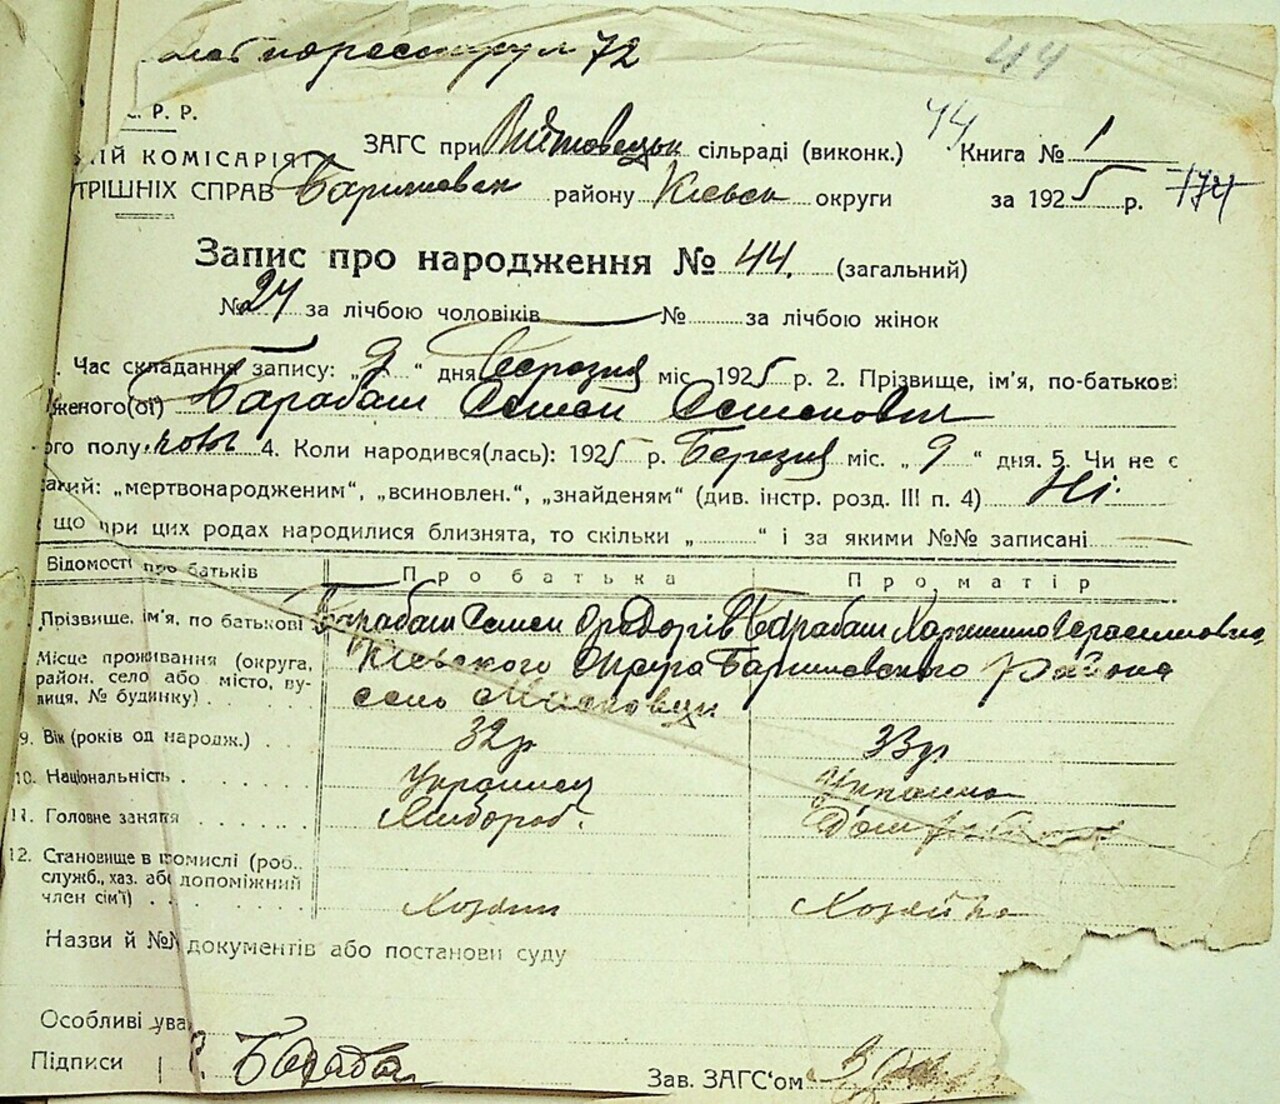 72
44
С. Р. Р.
44
ЗАГС при Війтовецьк сільраді (виконк.) Книга № 1
ИЙ КОМІСАРІЯТ
ТРІШНІХ СПРАВ Баришевск району Кіевск округи за 1925 р. 174
Запис про народження № 44. (загальний)
№ 24 за лічбою чоловіків № за лічбою жінок
Час складання запису: „ 9 “ дня Березня міс. 1925 р. 2. Прізвище, ім'я, по-батькові
женого(ої) Барабаш Семен Семенович
ого полу чолов 4. Коли народився(лась): 1925 р. Березня міс. „ 9 “ дня. 5. Чи не є
акий: „мертвонародженим“, „всиновлен.“, „знайденям“ (див. інстр. розд. III п. 4) Ні.
що при цих родах народилися близнята, то скільки „ “ і за якими №№ записані
Відомості про батьків Про батька Про матір
Прізвище, ім'я, по батькові Барабаш Семен Федорів Барабаш Герасимовна,
Місце проживання (округа, район. село або місто, вулиця, № будинку) Кіевского Округа Баришевского Района
село
9. Вік (років од народж.) 32 р 33 р
10. Національність Украинец Украинка
11. Головне заняття Хлибороб. Дом
12. Становище в промислі (роб.,
служб., хаз. або допоміжний
член сім'ї) Хозяин Хозяйка
Назви й №№ документів або постанови суду
Особливі ува
Підписи Бараба
Зав. ЗАГС'ом